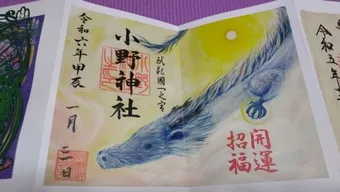 令和五年
武蔵國一之宮
開運
招福
小野神社
令和六年甲辰
一月